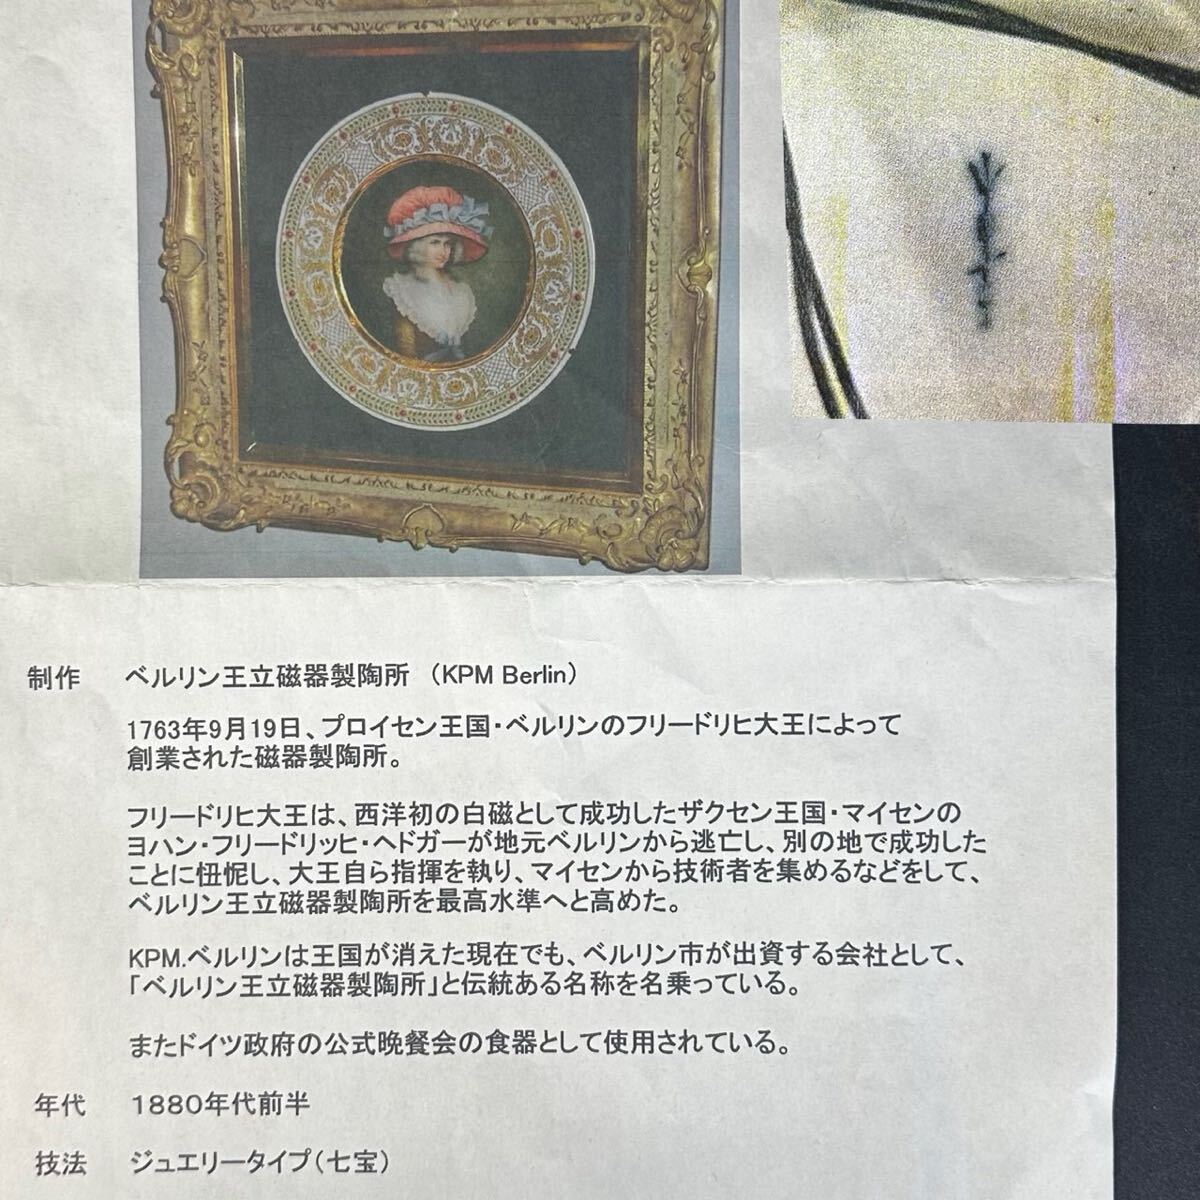 制作 ベルリン王立磁器製陶所 (KPM Berlin)
1763年9月19日、プロイセン王国・ベルリンのフリードリヒ大王によって
創業された磁器製陶所。
フリードリヒ大王は、西洋初の白磁として成功したザクセン王国・マイセンの
ヨハン・フリードリッヒ・ヘドガーが地元ベルリンから逃亡し、別の地で成功した
ことに忸怩し、大王自ら指揮を執り、マイセンから技術者を集めるなどをして、
ベルリン王立磁器製陶所を最高水準へと高めた。
KPM.ベルリンは王国が消えた現在でも、ベルリン市が出資する会社として、
「ベルリン王立磁器製陶所」と伝統ある名称を名乗っている。
またドイツ政府の公式晩餐会の食器として使用されている。
年代 1880年代前半
技法 ジュエリータイプ(七宝)